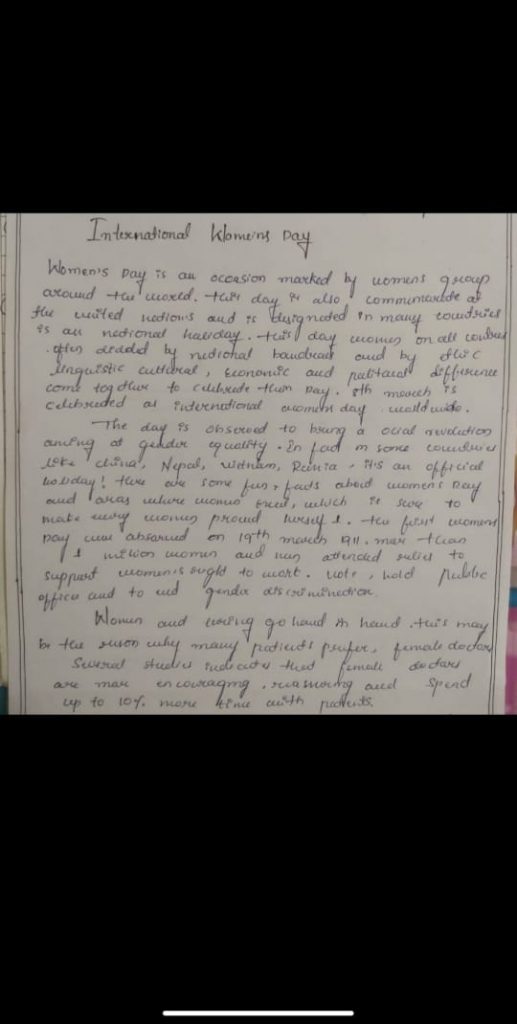 International Women's Day
Women's Day is an occasion marked by women's group
around the world. this day is also commemorate at
the united nations and is designated in many countries
is an national haliday. this day women on all
often divided by national and by ethic
linguistic cultural, economic and political difference
come together to celebrate their Day. 8th march is
celebrated as international women day. worldwide.
The day is observed to bring a ocial revolution
aming at gender equality. In fact in some countries
like china, Nepal, vietnam, Russia, it's an official
holiday! there are some fun, facts about women's Day
and areas where women excel, which is sure to
make every women proud herself. the first women's
Day was absarved on 19th march 1911. mar than
1 million women and men attended to
support women's to work. vote, hold public
office and to end gender discrimination.
Women and caring go hand in hand. this may
be the reason why many patients prefer, female doctors
Several studies indicates that female doctors
are mar encouraging, reassuring and spend
up to 10% more time with patients.